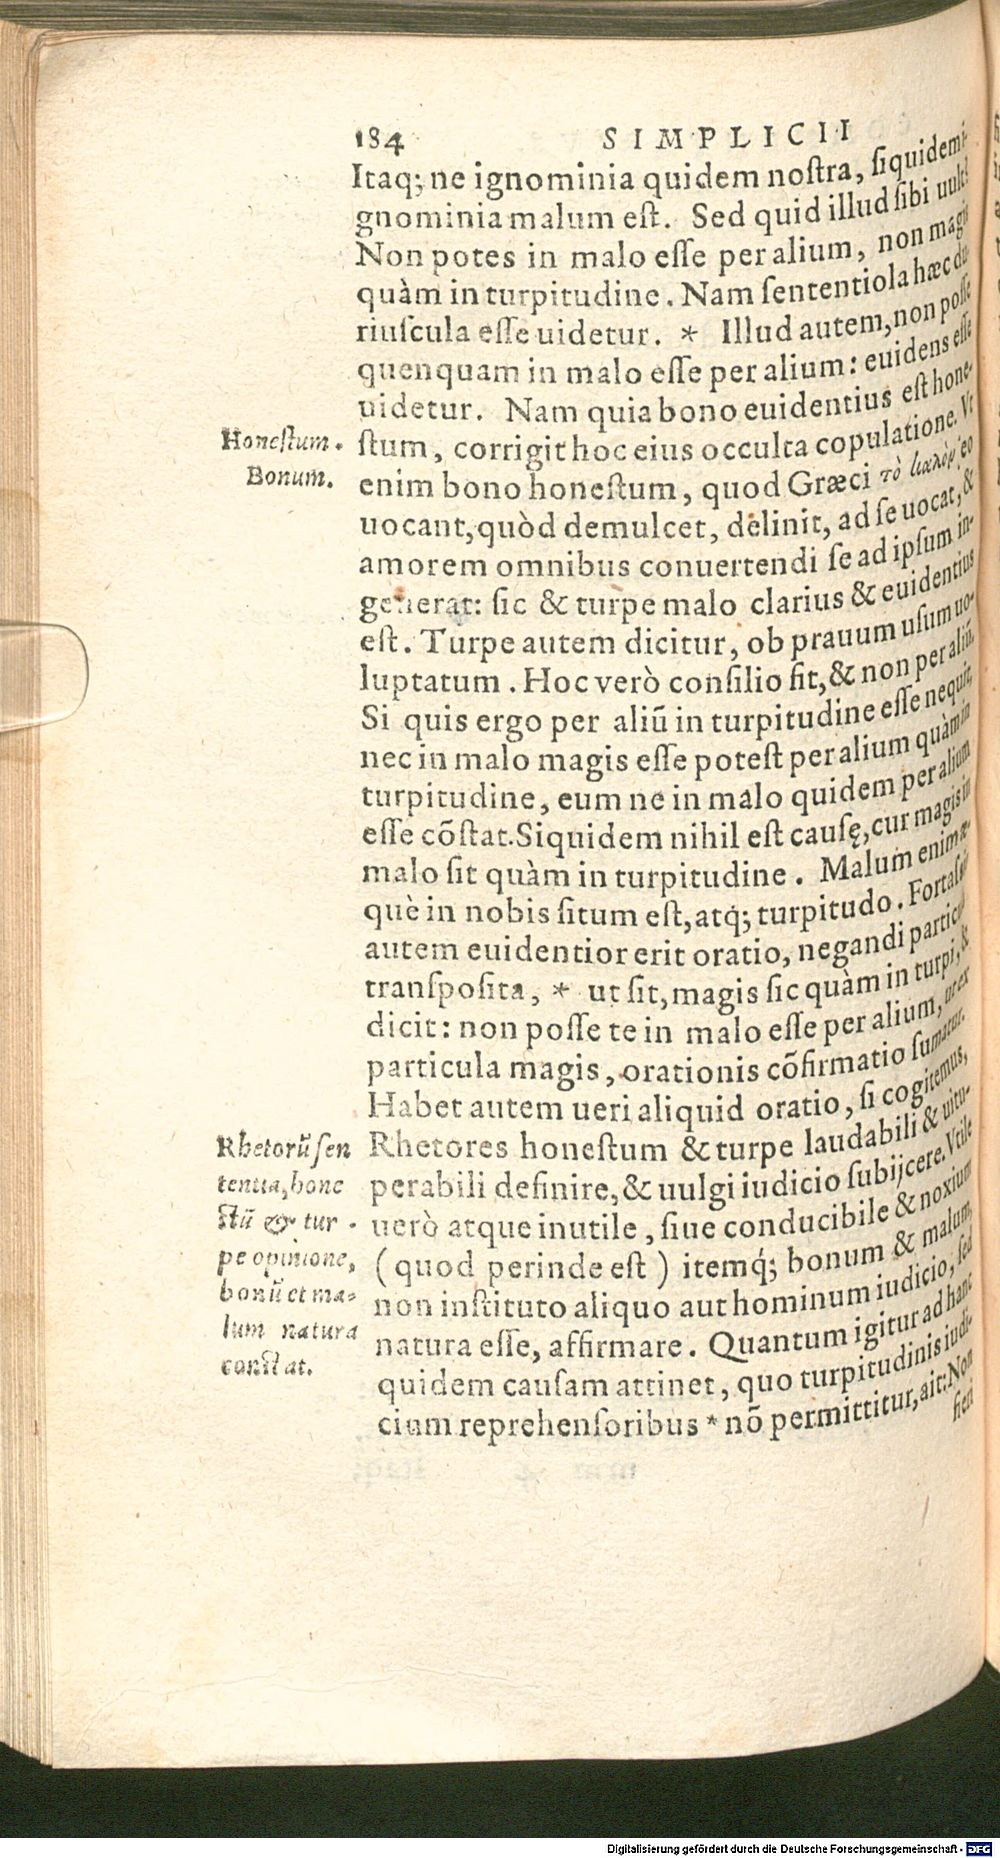 184 SIMPLICII
Itaq; ne ignominia quidem nostra, siquidem i-
gnominia malum est. Sed quid illud sibi uult?
Non potes in malo esse per alium, non magis
quàm in turpitudine. Nam sententiola hæc du-
riuscula esse uidetur. * Illud autem, non posse
quenquam in malo esse per alium: euidens esse
uidetur. Nam quia bono euidentius est hone-
Honestum.
Bonum.
stum, corrigit hoc eius occulta copulatione. Vt
enim bono honestum, quod Græci τὸ καλὸν eo
uocant, quòd demulcet, delinit, ad se uocat, &
amorem omnibus conuertendi se ad ipsum in-
generat: sic & turpe malo clarius & euidentius
est. Turpe autem dicitur, ob prauum usum uo-
luptatum. Hoc verò consilio fit, & non per aliũ.
Si quis ergo per aliũ in turpitudine esse nequit,
nec in malo magis esse potest per alium quàm in
turpitudine, eum ne in malo quidem per alium
esse cõstat. Siquidem nihil est causę, cur magis in
malo sit quàm in turpitudine. Malum enim æ-
què in nobis situm est, atq; turpitudo. Fortassis
autem euidentior erit oratio, negandi particula
transposita, * ut sit, magis sic quàm in turpi, &
dicit: non posse te in malo esse per alium, ut ex
particula magis, orationis cõfirmatio sumatur.
Habet autem ueri aliquid oratio, si cogitemus,
Rhetorũ sen
tentia, hone
stũ & tur-
pe opinione,
bonũ et ma-
lum natura
constat.
Rhetores honestum & turpe laudabili & uitu-
perabili definire, & uulgi iudicio subijcere. Vtile
uerò atque inutile, siue conducibile & noxium
(quod perinde est) itemq́; bonum & malum,
non instituto aliquo aut hominum iudicio, sed
natura esse, affirmare. Quantum igitur ad hanc
quidem causam attinet, quo turpitudinis iudi-
cium reprehensoribus * nõ permittitur, ait: Non
fieri